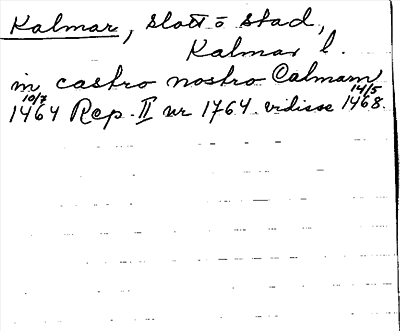 Kalmar, slott o stad,
Kalmar l.
in castro nostro Calmarn
10/7 14/5
1464 Rep. II nr 1764. vidisse 1468.